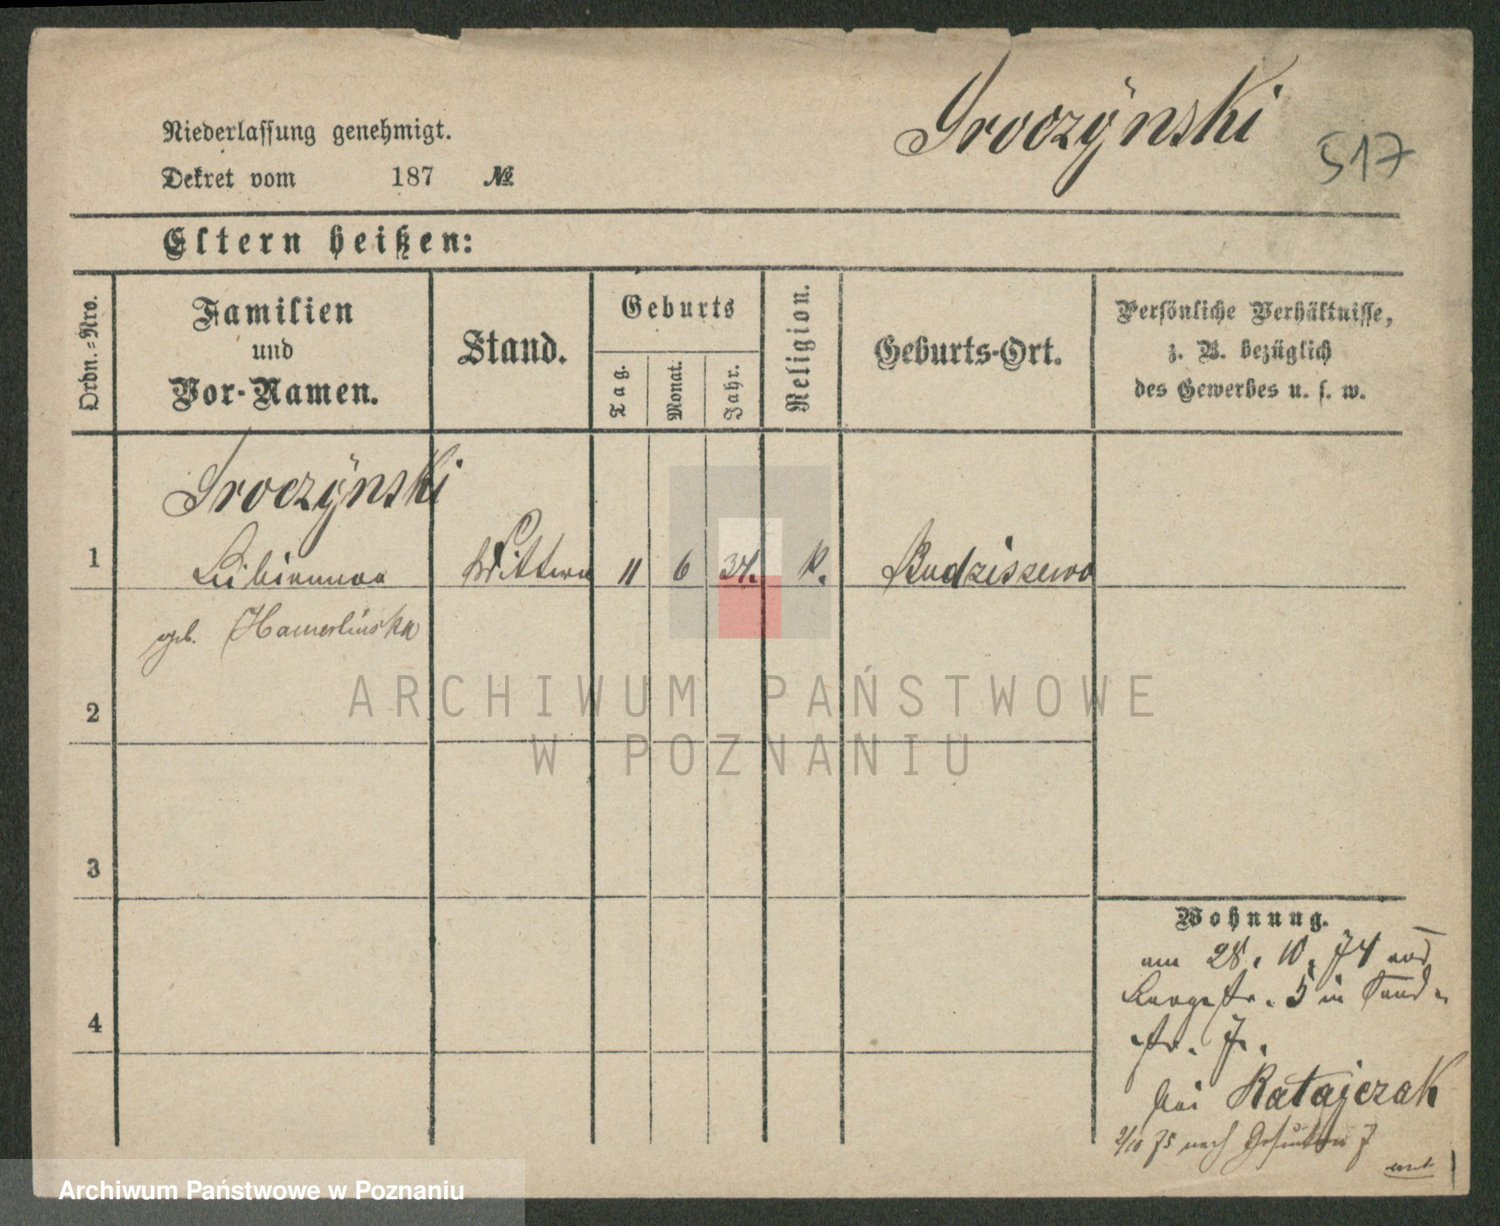 Sroczÿnski
517
Niederlassung genehmigt.
Dekret vom 187 №
Eltern heißen:
Ordn.=Nro.
Familien
und
Vor-Namen.
Stand.
Geburts
Tag.
Monat.
Jahr.
Religion.
Geburts-Ort.
Persönliche Verhältnisse,
z. B. bezüglich
des Gewerbes u. s. w.
Sroczÿnski
1 Wittwe 11 6 37. k. Budziszewo
geb. Hamerlinska
2
3
4
Wohnung.
am 28. 10. 74 von
Langestr. 5 in
str. 7.
bei Ratajczak
2/10 75 nach 7
ARCHIWUM PAŃSTWOWE
W POZNANIU
Archiwum Państwowe w Poznaniu